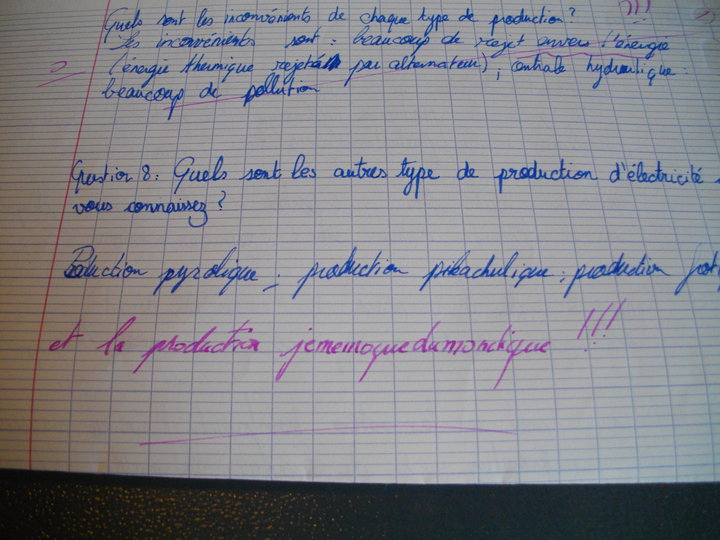 Quels sont les inconvénients de chaque type de production ? !!!
Les inconvénients sont : beaucoup de rejet envers l'énergie
(énergie thermique rejeté par alternateur) ; centrale hydraulique :
beaucoup de pollution
Question 8 : Quels sont les autres type de production d'électricité
vous connaissez ?
Production pyrolique ; production pikachulique ; production
et la production jememoquedumondique !!!